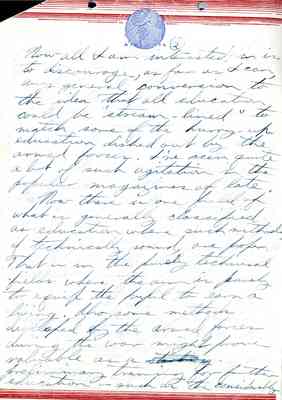 (2)
Now all I am interested in is
to discourage, as far as I can,
any general conversion to
the idea that all education
could be "stream-lined" to
match some of the hurry-up
education dished out by the
armed forces. I've seen quite
a bit of such agitation in the
popular magazines of late.
Now there is one field of
what is generally classified
as education where such methods
if technically sound, are proper.
That is in the purely technical
fields where the aim is purely
to equip the pupil to earn a
living. Also, some methods
developed by the armed forces
during the war might prove
valuable as a
preliminary training for further
education - such as the considerably